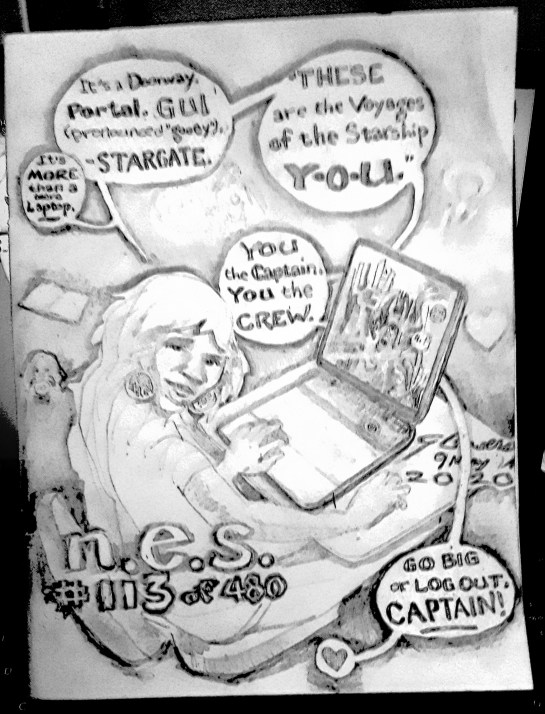 It's a Doorway.
Portal. GUI
(pronounced "gooey").
-STARGATE.
"THESE
are the Voyages
of the Starship
Y-O-U."
It's
MORE
than a
mere
Laptop.
YOU
the Captain.
YOU the
CREW.
2020
n.e.s.
#113 of 480
GO BIG
or LOG OUT,
CAPTAIN!